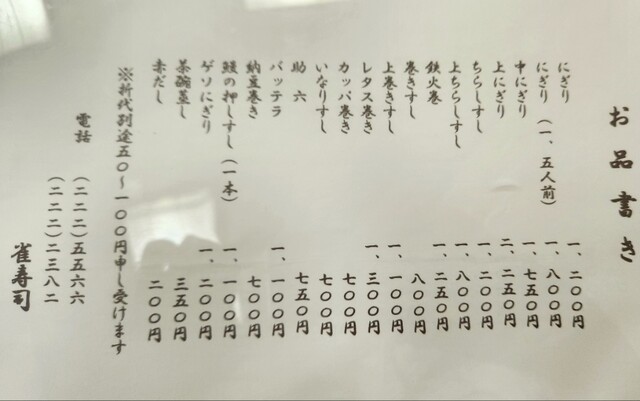 お品書き
にぎり 一、二〇〇円
にぎり（一、五人前） 一、八〇〇円
中にぎり 一、七五〇円
上にぎり 二、二五〇円
ちらしすし 一、二〇〇円
上ちらしすし 一、八〇〇円
鉄火巻 一、二五〇円
巻きすし 八〇〇円
上巻きすし 一、一〇〇円
レタス巻き 一、三〇〇円
カッパ巻き 七〇〇円
いなりすし 七〇〇円
助六 七五〇円
バッテラ 一、一〇〇円
納豆巻き 七〇〇円
鰻の押しすし（一本） 一、一〇〇円
ゲソにぎり 一、二〇〇円
茶碗蒸し 三五〇円
赤だし 二〇〇円
※折代別途五〇〜一〇〇円申し受けます
電話（二二二）五五六六
（二二二）二三八二
雀寿司